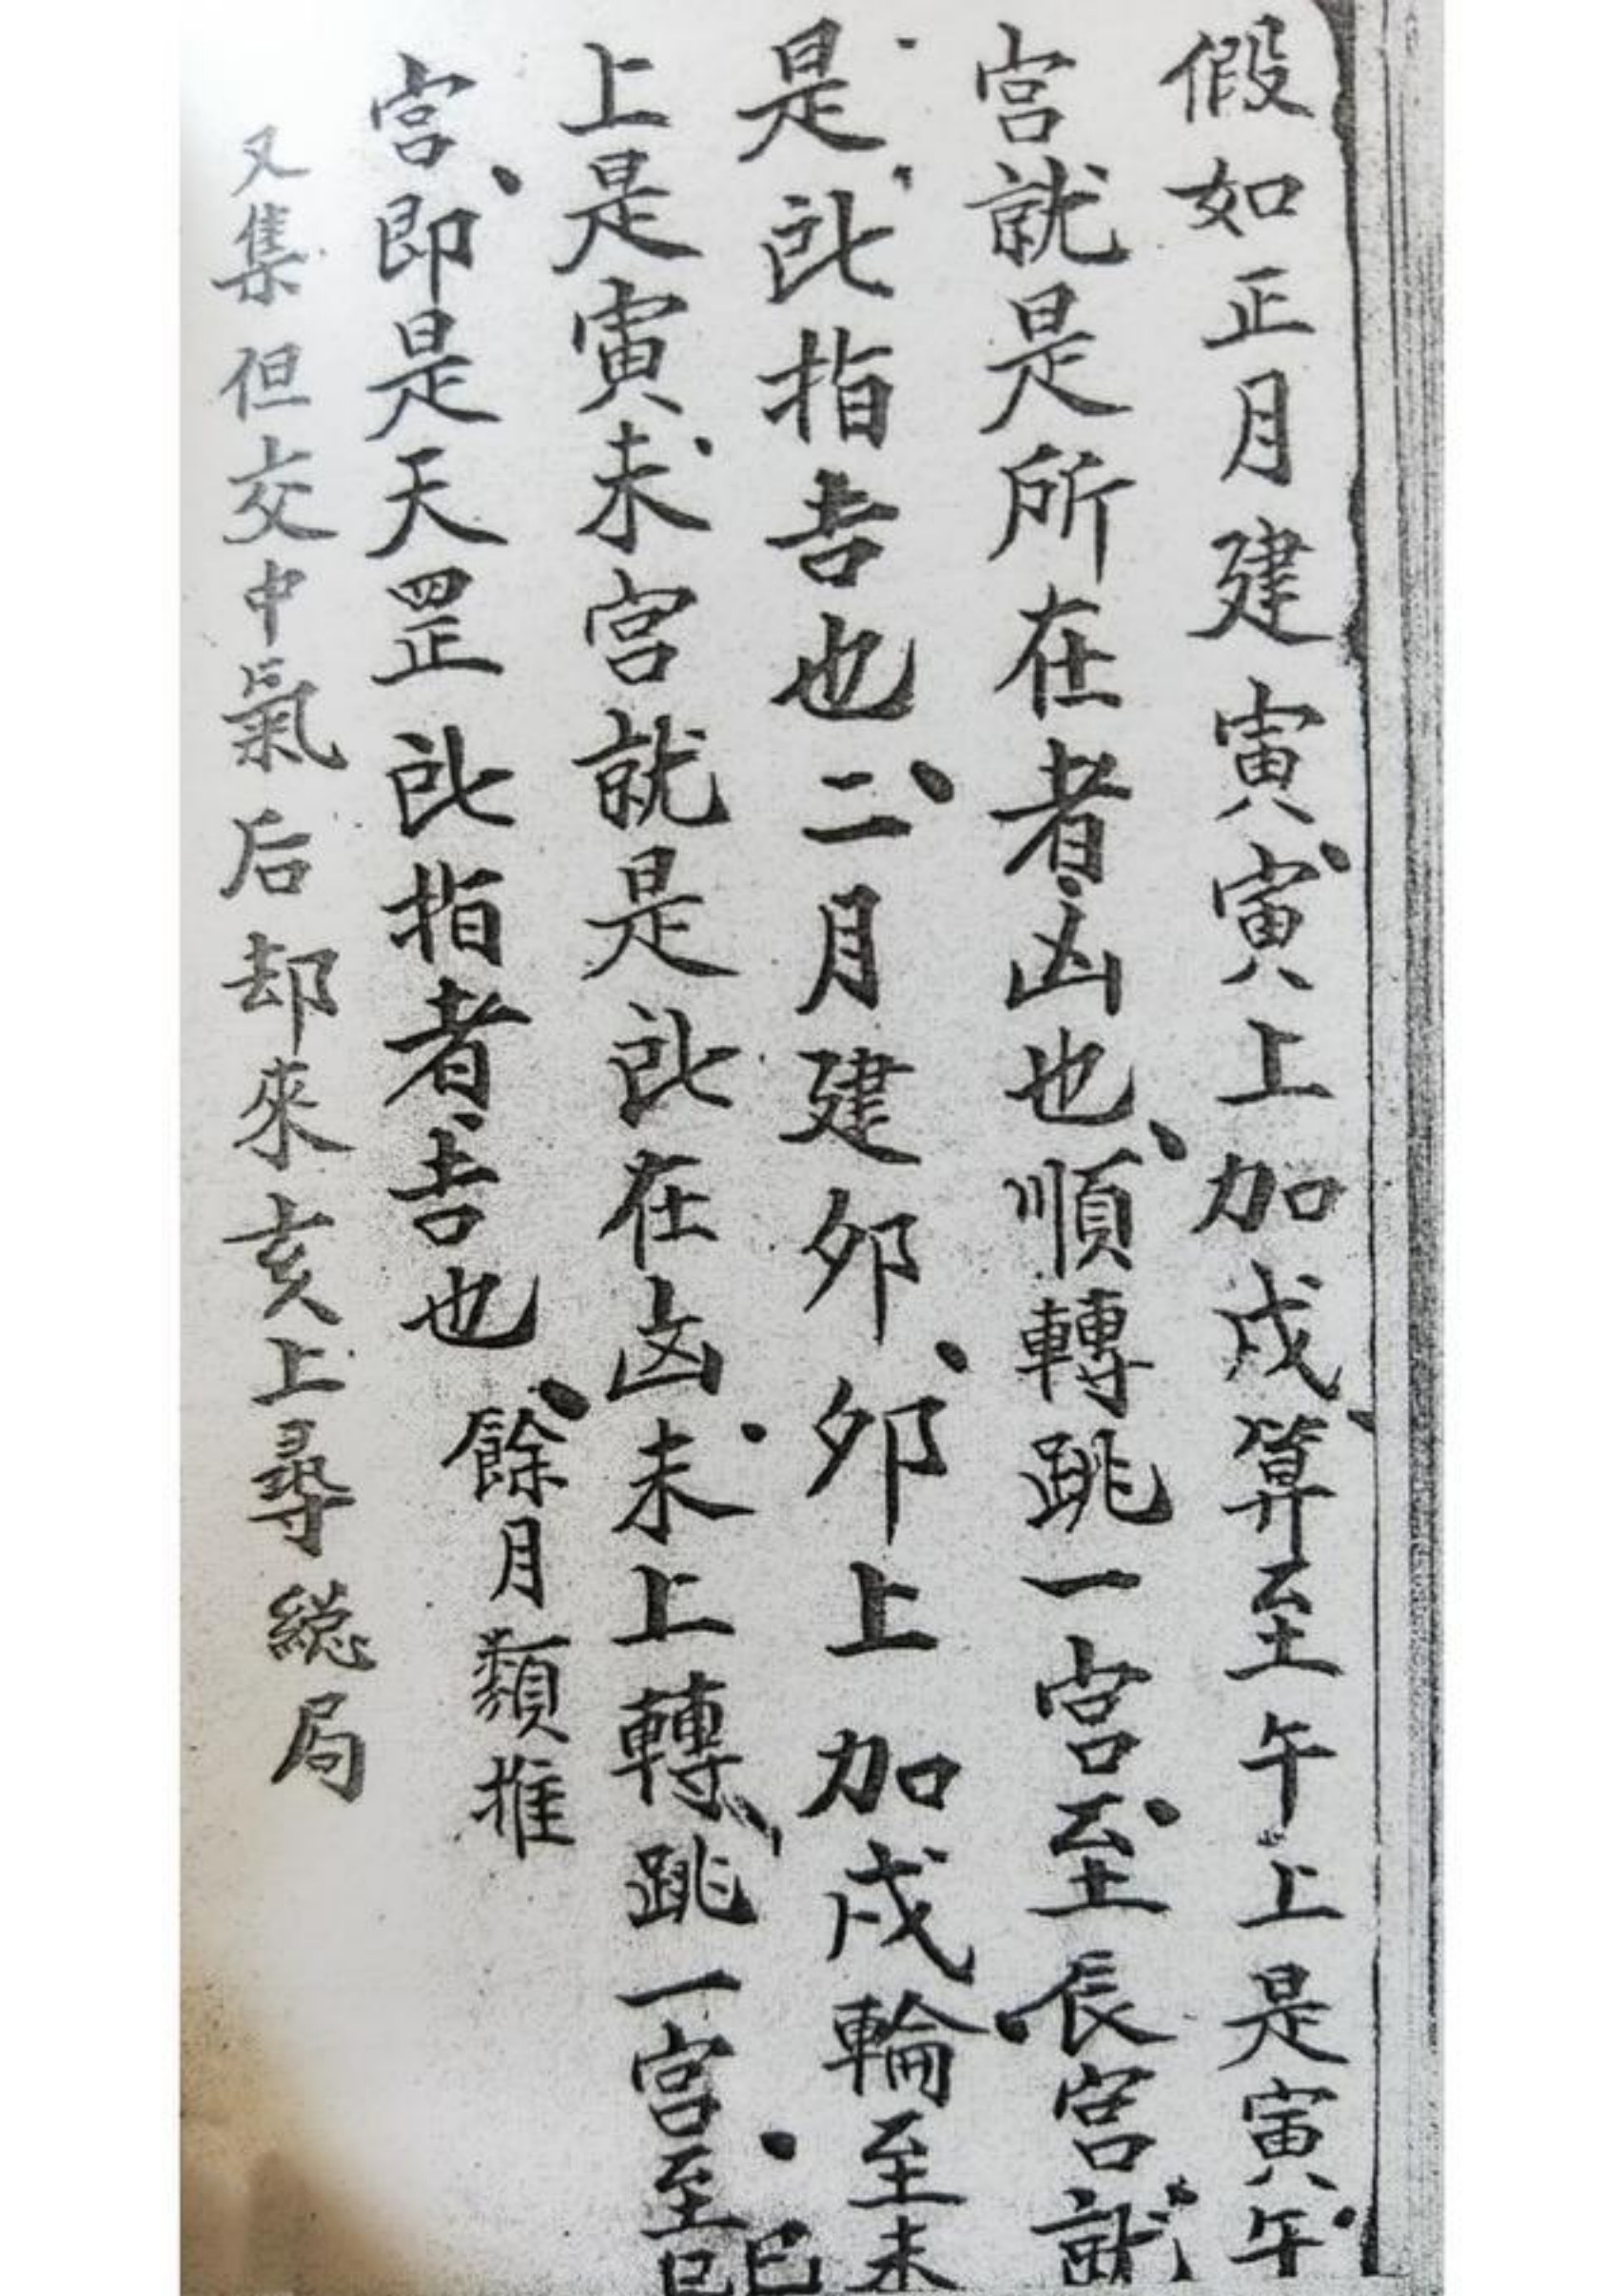 假如正月建寅、寅上加戌、算至午上是寅、午
宮就是所在者凶也、順轉跳一宮、至辰宮就
是所指吉也、二月建卯、卯上加戌、輪至未
上是寅、未宮就是所在凶、未上轉、跳一宮、至巳
巳
宮、即是天罡所指者吉也、餘月類推
又集但交中氣后却來亥上尋総局